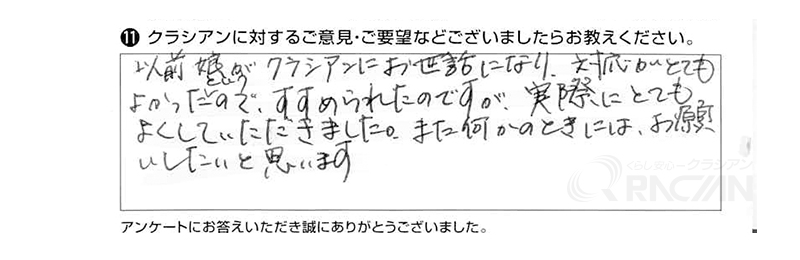 ⓫ クラシアンに対するご意見・ご要望などございましたらお教えください。
以前娘がクラシアンにお世話になり、対応がとても
よかったので、すすめられたのですが、実際にとても
よくしていただきました。また何かのときには、お願
いしたいと思います
くらし安心クラシアン
QRACIAN
アンケートにお答えいただき誠にありがとうございました。